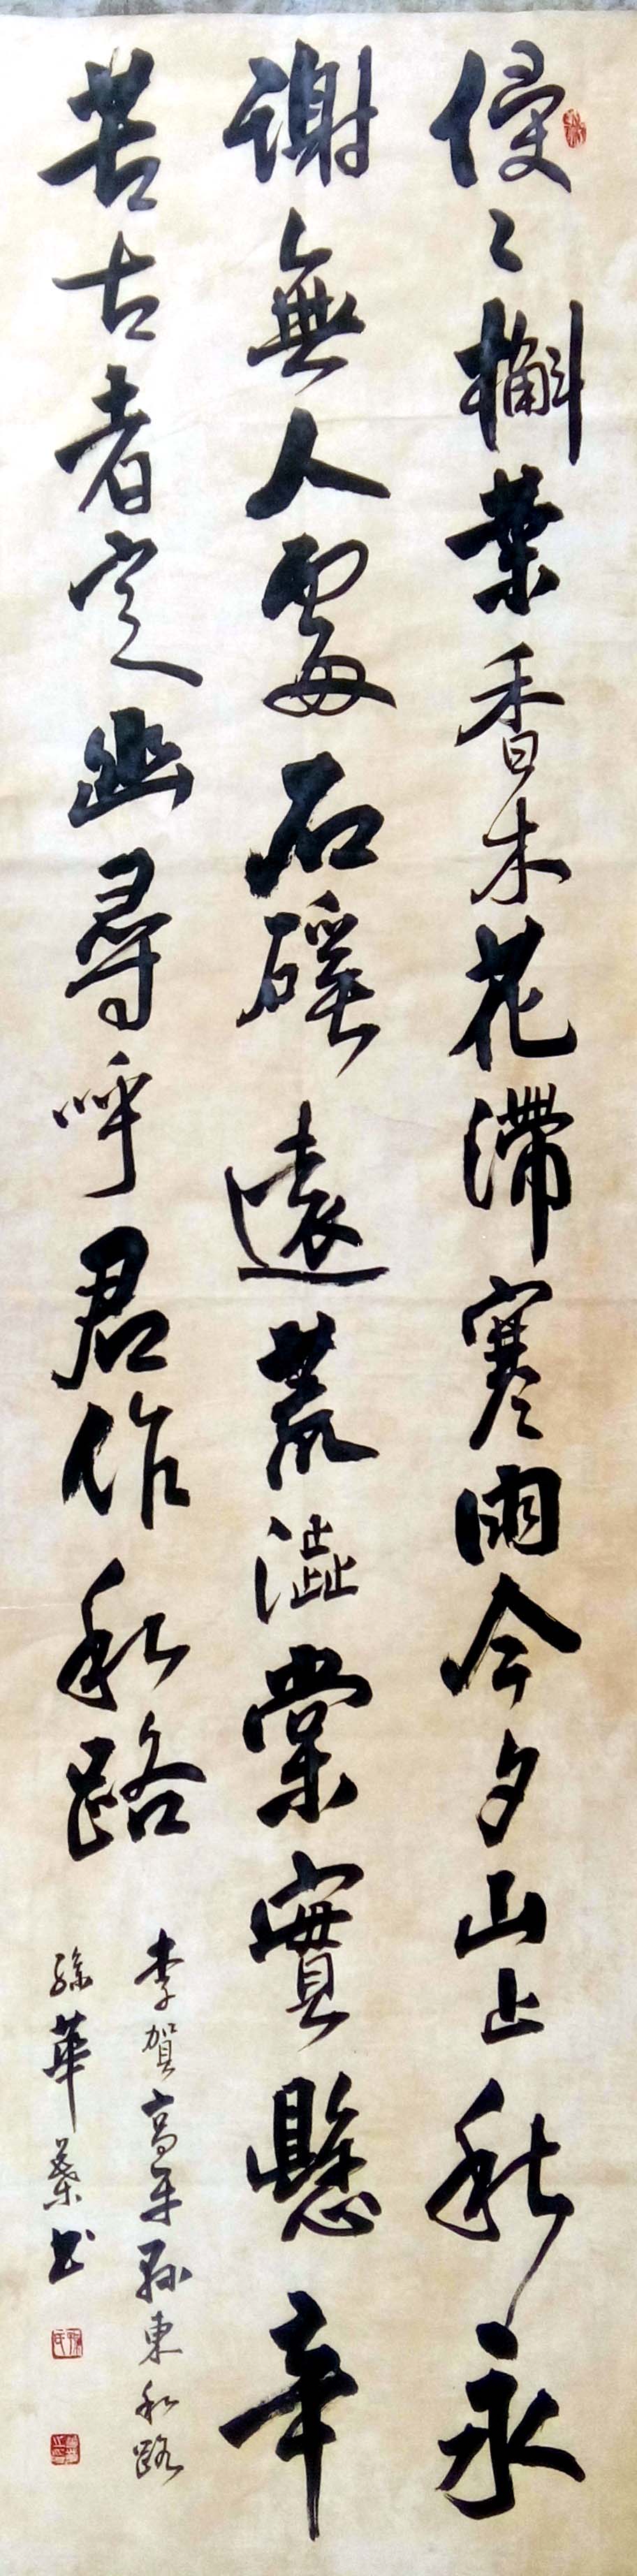 侵〻槲葉香木花滯寒雨今夕山上秋永
謝無人處石磎遠荒澀棠實懸辛
苦古者定幽尋呼君作私路
李賀高平縣東私路
孫華書